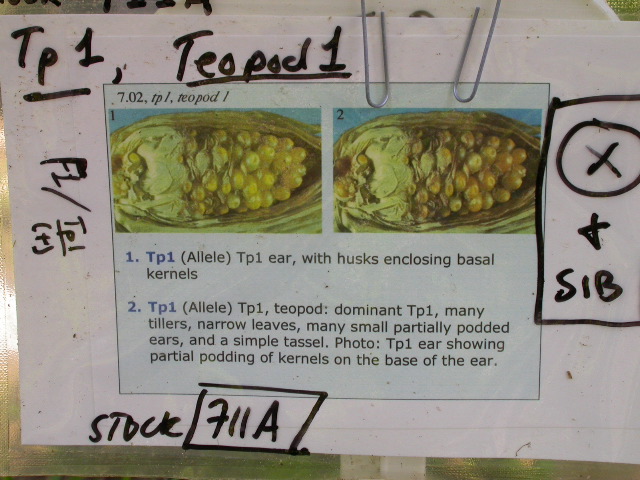 711A
Tp1, Teopod1
7.02, tp1, teopod 1
1
2
1. Tp1 (Allele) Tp1 ear, with husks enclosing basal
kernels
2. Tp1 (Allele) Tp1, teopod: dominant Tp1, many
tillers, narrow leaves, many small partially podded
ears, and a simple tassel. Photo: Tp1 ear showing
partial podding of kernels on the base of the ear.
X
+
SIB
STOCK 711A